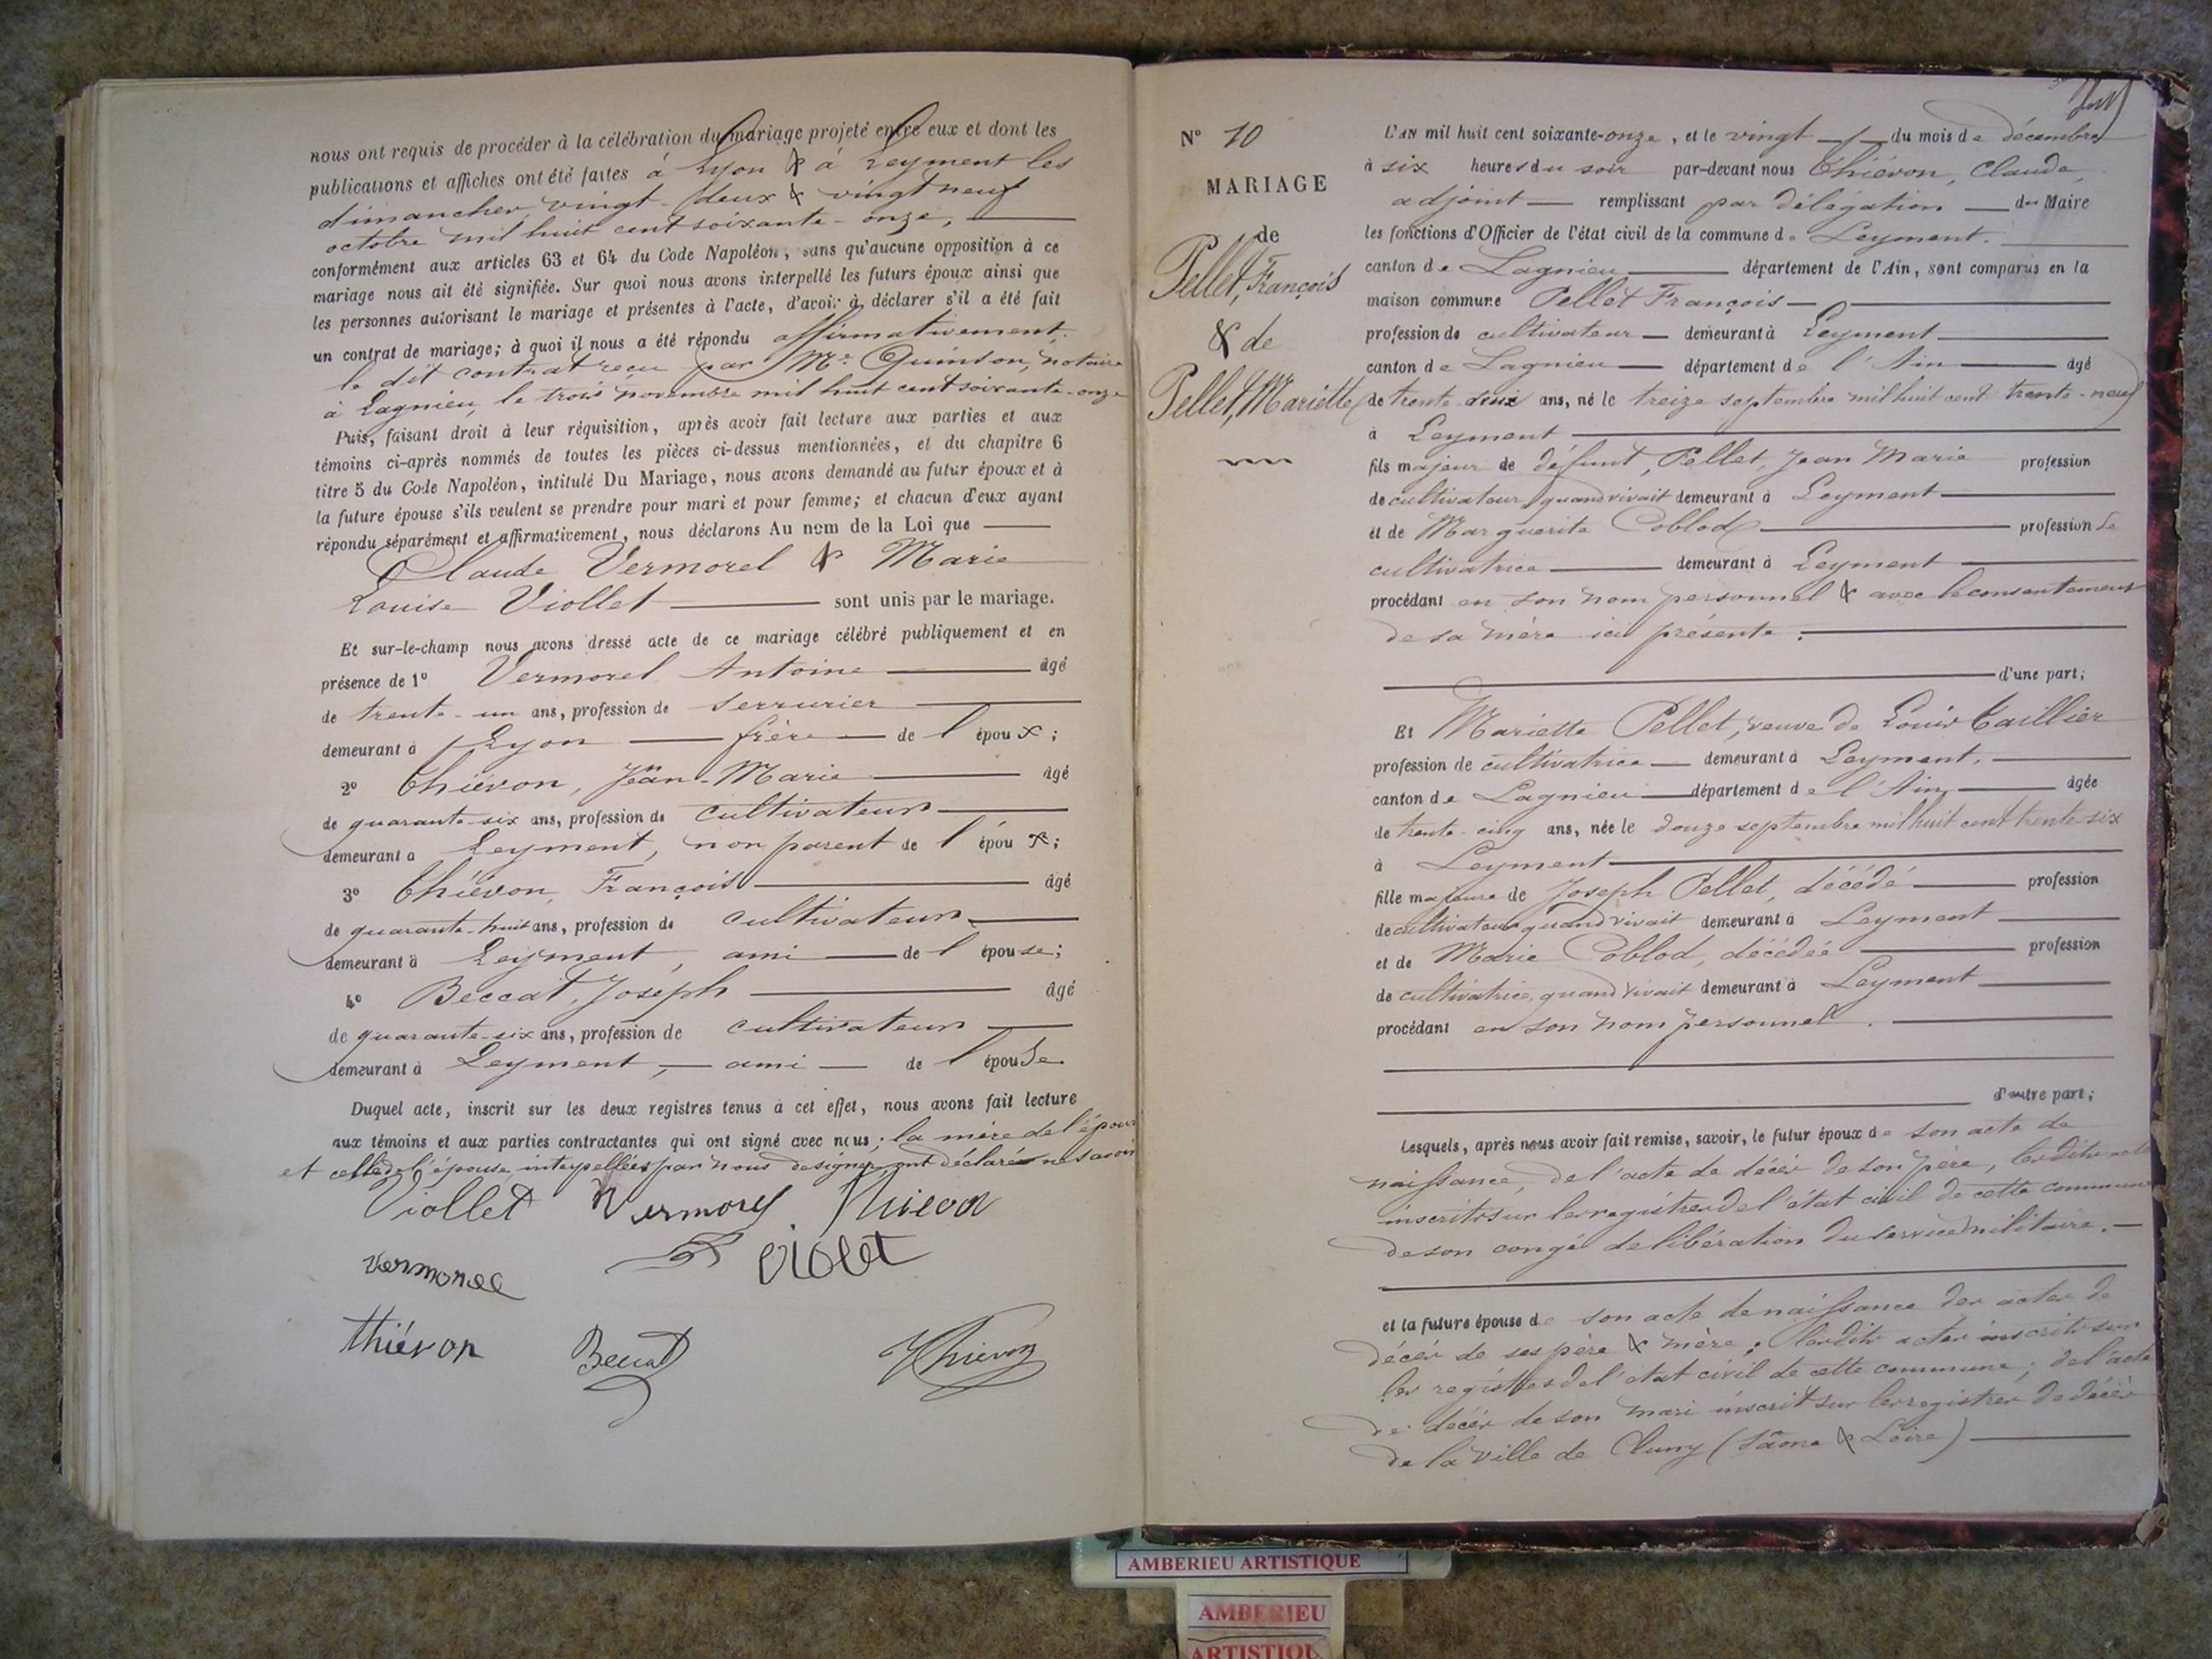 nous ont requis de procéder à la célébration du mariage projeté entre eux et dont les
publications et affiches ont été faites à Lyon & à Leyment les
dimanches vingt-deux & vingt neuf
octobre mil huit cent soixante-onze,
conformément aux articles 63 et 64 du Code Napoléon, sans qu'aucune opposition à ce
mariage nous ait été signifiée. Sur quoi nous avons interpellé les futurs époux ainsi que
les personnes autorisant le mariage et présentes à l'acte, d'avoir à déclarer s'il a été fait
un contrat de mariage; à quoi il nous a été répondu affirmativement,
le dit contrat reçu par Me Quinson, notaire
à Lagnieu, le trois novembre mil huit cent soixante-onze
Puis, faisant droit à leur réquisition, après avoir fait lecture aux parties et aux
témoins ci-après nommés de toutes les pièces ci-dessus mentionnées, et du chapitre 6
titre 5 du Code Napoléon, intitulé Du Mariage, nous avons demandé au futur époux et à
la future épouse s'ils veulent se prendre pour mari et pour femme; et chacun d'eux ayant
répondu séparément et affirmativement, nous déclarons Au nom de la Loi que
Claude Vermorel & Marie
Louise Viollet sont unis par le mariage.
Et sur-le-champ nous avons dressé acte de ce mariage célébré publiquement et en
présence de 1º Vermorel Antoine âgé
de trente-un ans, profession de serrurier
demeurant à Lyon frère de l'époux;
2º Thiévon, Jean-Marie âgé
de quarante-six ans, profession de cultivateur
demeurant à Leyment, non parent de l'époux;
3º Thiévon, François âgé
de quarante-huit ans, profession de cultivateur
demeurant à Leyment, ami de l'épouse;
4º Beccat, Joseph âgé
de quarante-six ans, profession de cultivateur
demeurant à Leyment, ami de l'épouse
Duquel acte, inscrit sur les deux registres tenus à cet effet, nous avons fait lecture
aux témoins et aux parties contractantes qui ont signé avec nous; la mère de l'époux
et celle de l'épouse interpellées par nous de signer ont déclaré ne savoir
Viollet Vermorel Thiévon
vermorel violet
thiévon Beccat Thiévon
Nº 10
MARIAGE
de
Pellet, François
& de
Pellet, Mariette
L'AN mil huit cent soixante-onze, et le vingt du mois de décembre
à six heures du soir par-devant nous Thiévon, Claude,
adjoint remplissant par délégation du Maire
les fonctions d'Officier de l'état civil de la commune de Leyment.
canton de Lagnieu département de l'Ain, sont comparus en la
maison commune Pellet François
profession de cultivateur demeurant à Leyment
canton de Lagnieu département de l'Ain âgé
de trente-deux ans, né le treize septembre mil huit cent trente-neuf
à Leyment
fils majeur de défunt, Pellet, Jean Marie profession
de cultivateur, quand vivait demeurant à Leyment
et de Marguerite Coblod profession de
cultivatrice demeurant à Leyment
procédant en son nom personnel & avec le consentement
de sa mère ici présente.
d'une part;
Et Mariette Pellet, veuve de Louis Caillier
profession de cultivatrice demeurant à Leyment,
canton de Lagnieu département de l'Ain âgée
de trente-cinq ans, née le douze septembre mil huit cent trente-six
à Leyment
fille majeure de Joseph Pellet, décédé profession
de cultivateur quand vivait demeurant à Leyment
et de Marie Coblod, décédée profession
de cultivatrice, quand vivait demeurant à Leyment
procédant en son nom personnel.
d'autre part;
Lesquels, après nous avoir fait remise, savoir, le futur époux de son acte de
naissance, de l'acte de décès de son père, les dits actes
inscrits sur les registres de l'état civil de cette commune
de son congé de libération du service militaire.
et la future épouse de son acte de naissance des actes de
décès de ses père & mère, les dits actes inscrits sur
les registres de l'état civil de cette commune; de l'acte
de décès de son mari inscrit sur les registres de décès
de la ville de Cluny (Saône & Loire)
AMBERIEU ARTISTIQUE
AMBERIEU
ARTISTIQU